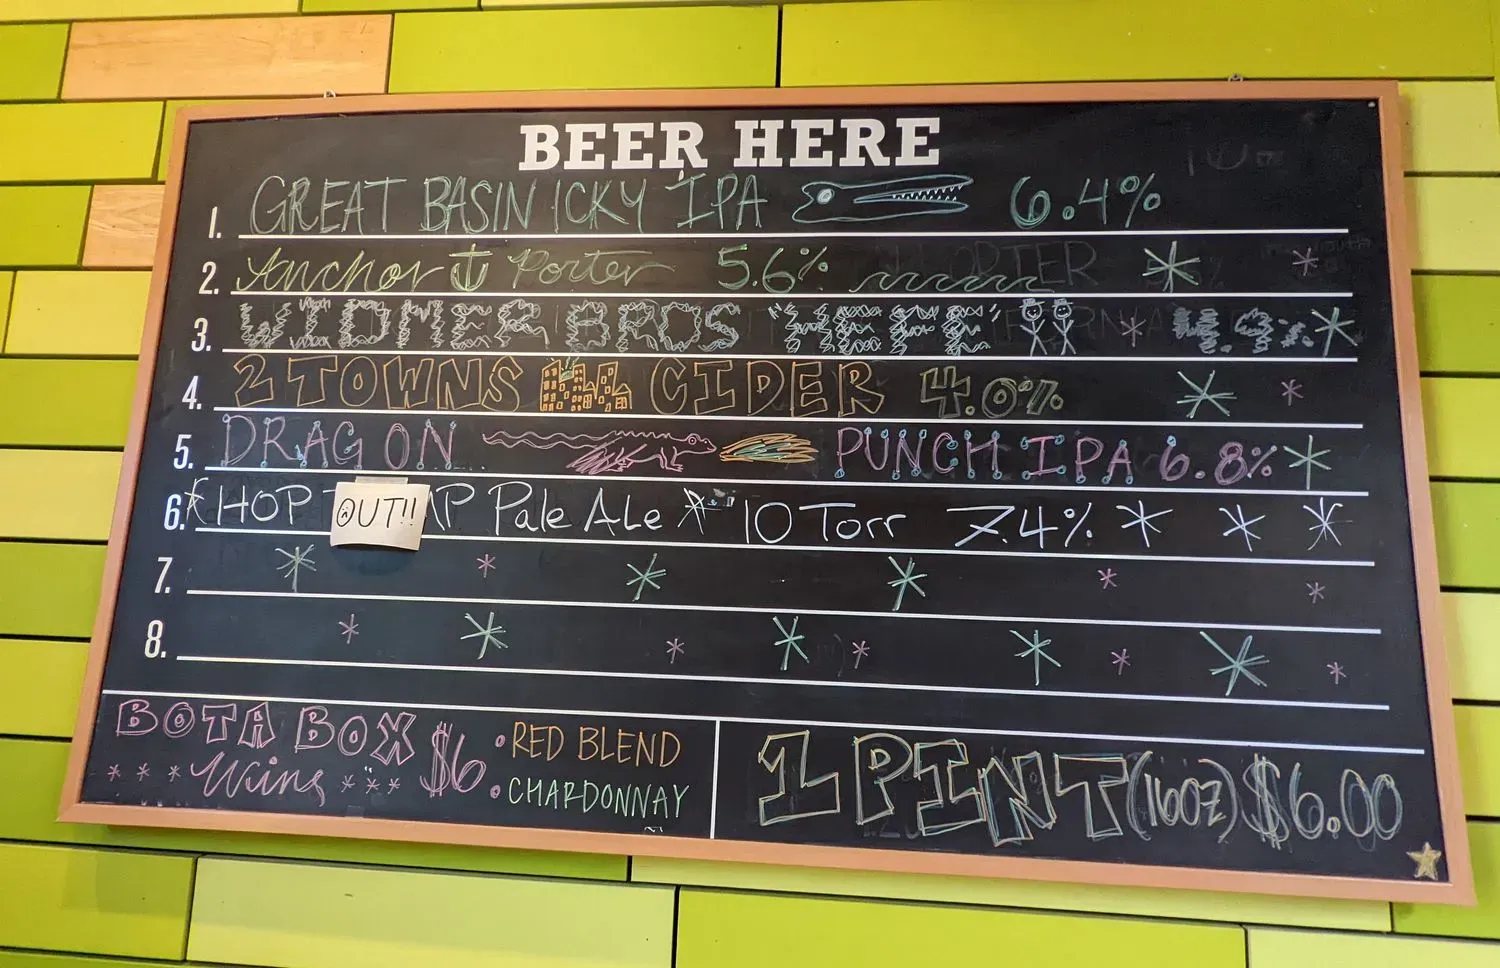 BEER HERE
1. GREAT BASIN ICKY IPA 6.4%
2. Anchor Porter 5.6%
3. WIDMER BROS "HEFE" 4.9%
4. 2 TOWNS CIDER 4.0%
5. DRAGON PUNCH IPA 6.8%
6. HOP OUT!! AP Pale Ale 10 Torr 7.4%
7.
8.
BOTA BOX $6 • RED BLEND
Wine • CHARDONNAY
1 PINT (16OZ) $6.00